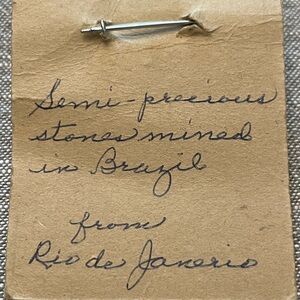 Semi-precious
stones mined
in Brazil
from
Rio de Janerio